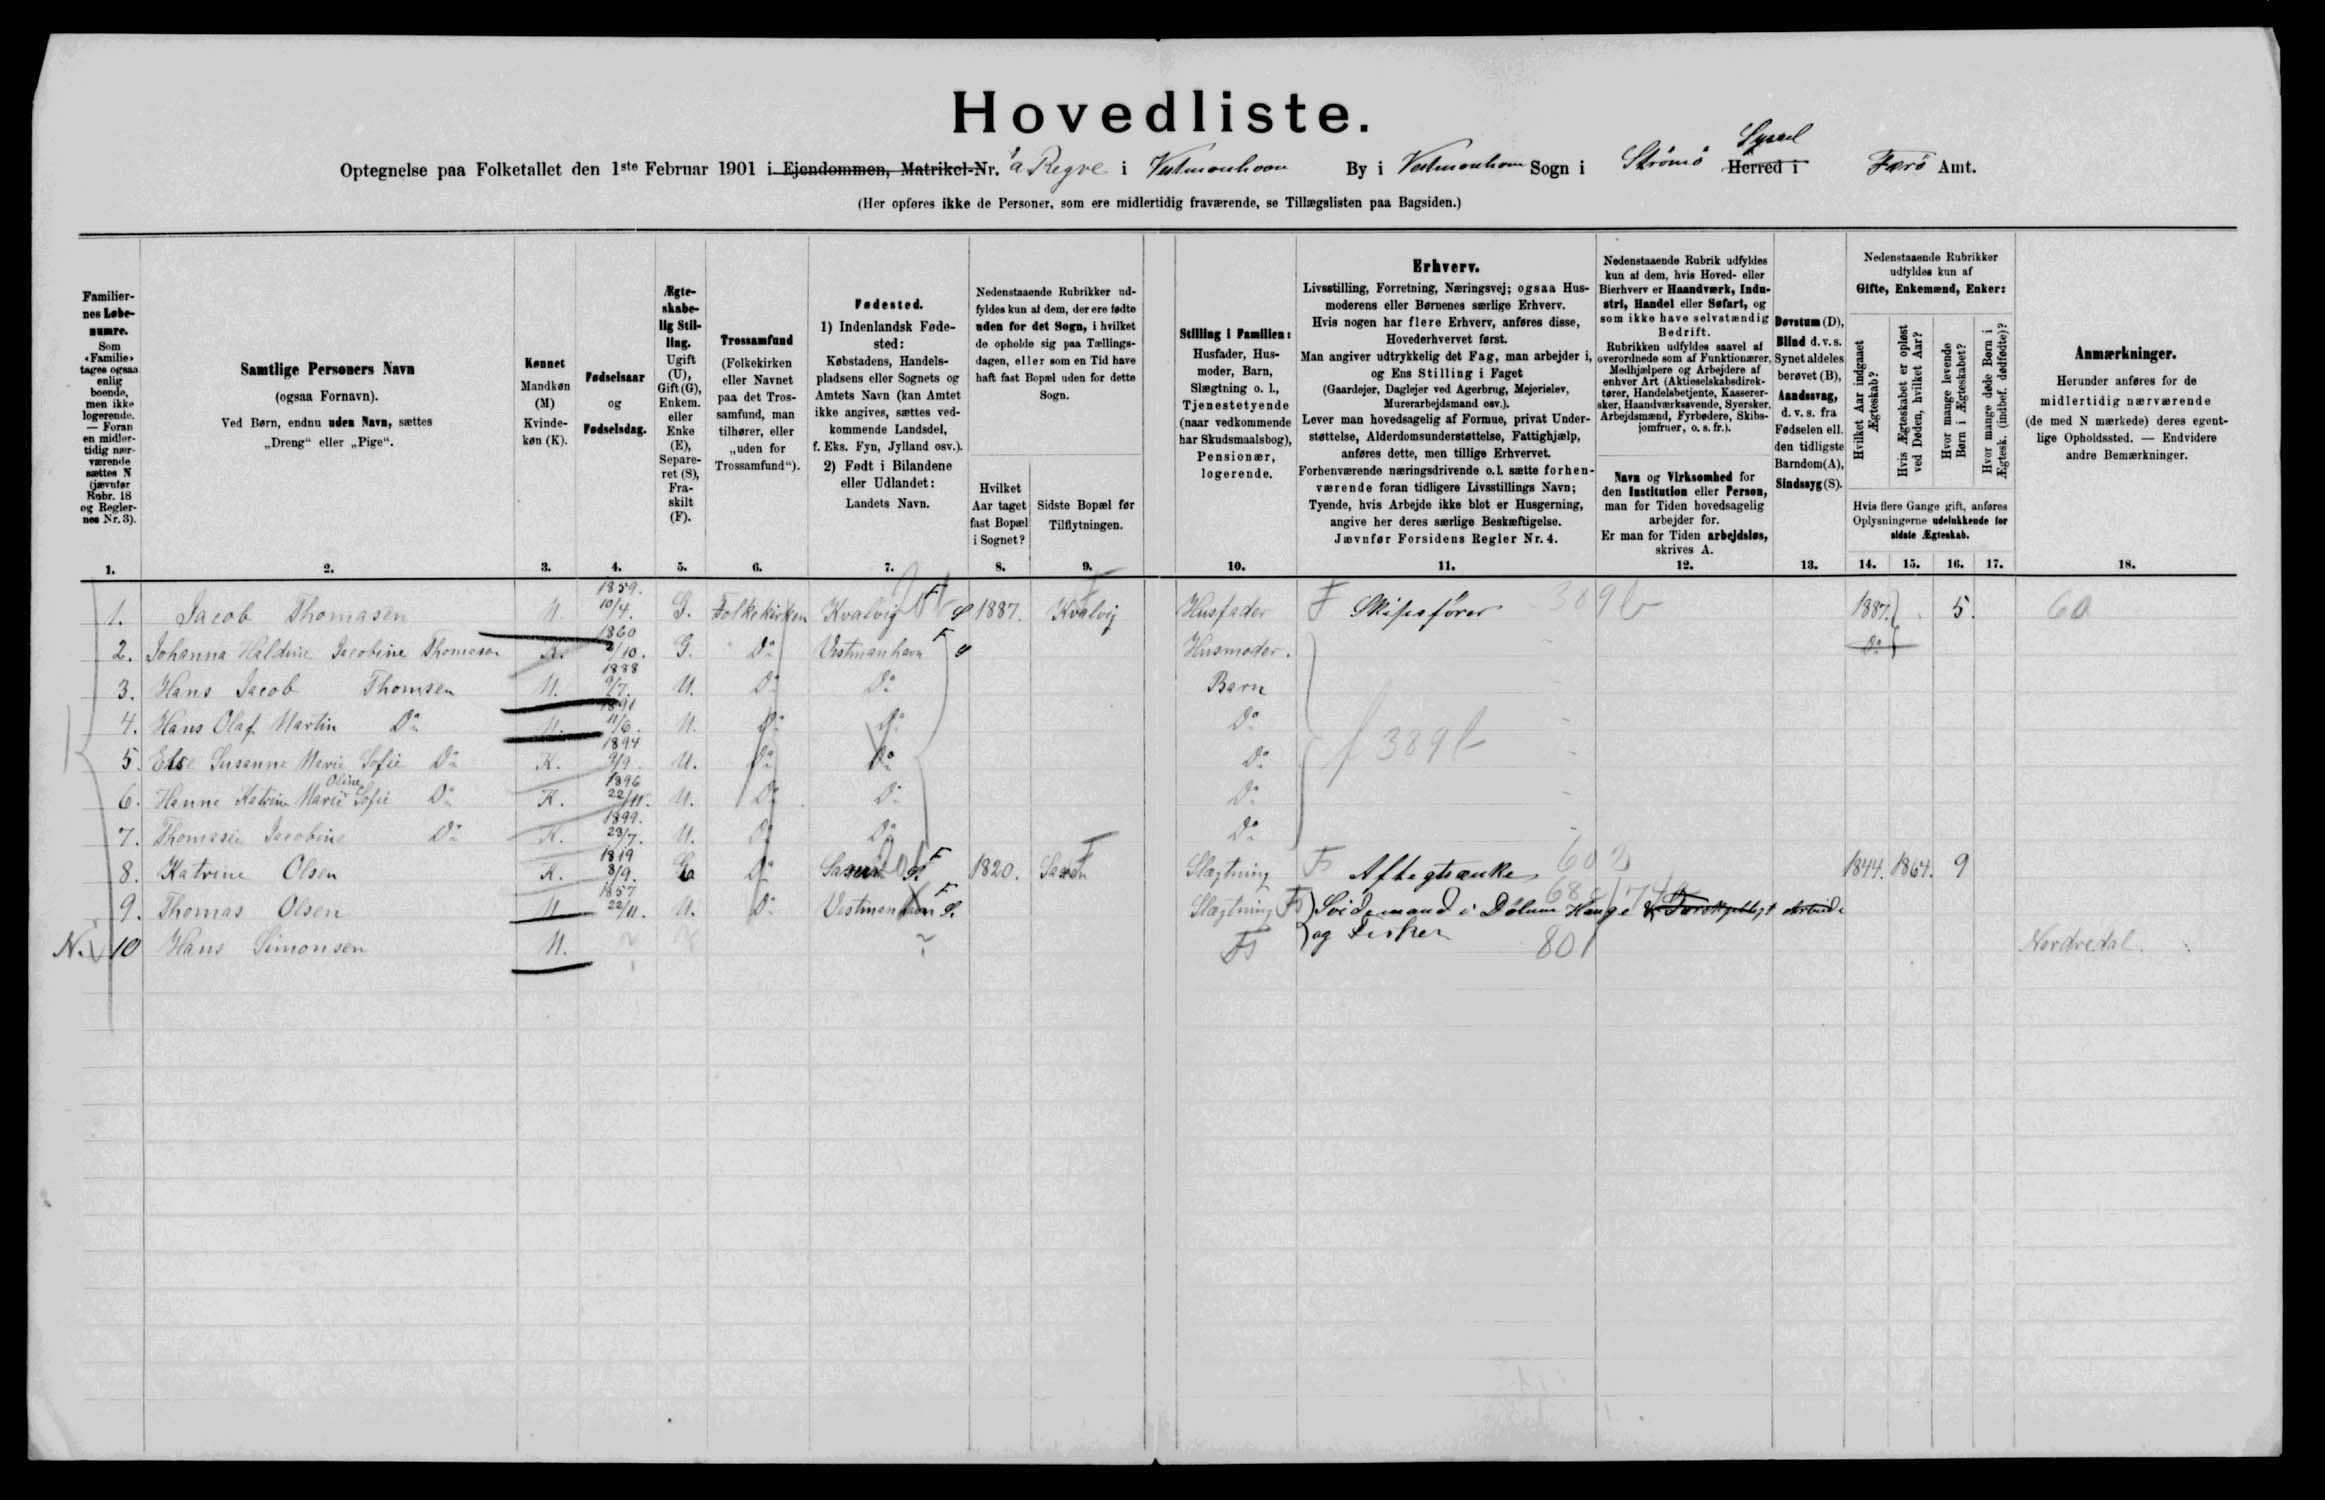 Hovedliste.
Optegnelse paa Folketallet den 1ste Februar 1901 i Ejendommen, Matrikel-Nr. á Regve i Vestmanhavn By i Vestmanhavn Sogn i Strømø Syssel Herred i Færø Amt.
(Her opføres ikke de Personer, som ere midlertidig fraværende, se Tillægslisten paa Bagsiden.)
Familiernes Løbenumre.
Som «Familie» tages ogsaa enlig boende, men ikke logerende. — Foran en midlertidig nærværende sættes N (jævnfør Rubr. 18 og Reglernes Nr. 3).
Samtlige Personers Navn
(ogsaa Fornavn).
Ved Børn, endnu uden Navn, sættes
„Dreng“ eller „Pige“.
Kønnet
Mandkøn (M)
Kvindekøn (K).
Fødselsaar
og
Fødselsdag.
Ægteskabelig Stilling.
Ugift (U), Gift (G), Enkem. eller Enke (E), Separeret (S), Fraskilt (F).
Trossamfund
(Folkekirken eller Navnet paa det Trossamfund, man tilhører, eller „uden for Trossamfund“).
Fødested.
1) Indenlandsk Fødested:
Købstadens, Handelspladsens eller Sognets og Amtets Navn (kan Amtet ikke angives, sættes vedkommende Landsdel, f. Eks. Fyn, Jylland osv.).
2) Født i Bilandene eller Udlandet:
Landets Navn.
Nedenstaaende Rubrikker udfyldes kun af dem, der ere fødte uden for det Sogn, i hvilket de opholde sig paa Tællingsdagen, eller som en Tid have haft fast Bopæl uden for dette Sogn.
Hvilket Aar taget fast Bopæl i Sognet?
Sidste Bopæl før Tilflytningen.
Stilling i Familien:
Husfader, Husmoder, Barn, Slægtning o. l., Tjenestetyende (naar vedkommende har Skudsmaalsbog), Pensionær, logerende.
Erhverv.
Livsstilling, Forretning, Næringsvej; ogsaa Husmoderens eller Børnenes særlige Erhverv.
Hvis nogen har flere Erhverv, anføres disse, Hovederhvervet først.
Man angiver udtrykkelig det Fag, man arbejder i, og Ens Stilling i Faget
(Gaardejer, Daglejer ved Agerbrug, Mejerielev, Murerarbejdsmand osv.).
Lever man hovedsagelig af Formue, privat Understøttelse, Alderdomsunderstøttelse, Fattighjælp, anføres dette, men tillige Erhvervet.
Forhenværende næringsdrivende o. l. sætte forhenværende foran tidligere Livsstillings Navn;
Tyende, hvis Arbejde ikke blot er Husgerning, angive her deres særlige Beskæftigelse.
Jævnfør Forsidens Regler Nr. 4.
Nedenstaaende Rubrik udfyldes kun af dem, hvis Hoved- eller Bierhverv er Haandværk, Industri, Handel eller Søfart, og som ikke have selvstændig Bedrift.
Rubrikken udfyldes saavel af overordnede som af Funktionærer, Medhjælpere og Arbejdere af enhver Art (Aktieselskabsdirektører, Handelsbetjente, Kasserersker, Haandværkssvende, Syersker, Arbejdsmænd, Fyrbødere, Skibsjomfruer, o. s. fr.).
Navn og Virksomhed for den Institution eller Person, man for Tiden hovedsagelig arbejder for.
Er man for Tiden arbejdsløs, skrives A.
Døvstum (D), Blind d. v. s. Synet aldeles berøvet (B), Aandssvag, d. v. s. fra Fødselen ell. den tidligste Barndom (A), Sindssyg (S).
Nedenstaaende Rubrikker udfyldes kun af
Gifte, Enkemænd, Enker:
Hvilket Aar indgaaet Ægteskab?
Hvis Ægteskabet er opløst ved Døden, hvilket Aar?
Hvor mange levende Børn i Ægteskabet?
Hvor mange døde Børn i Ægtesk. (indbef. dødfødte)?
Hvis flere Gange gift, anføres Oplysningerne udelukkende for sidste Ægteskab.
Anmærkninger.
Herunder anføres for de midlertidig nærværende (de med N mærkede) deres egentlige Opholdssted. — Endvidere andre Bemærkninger.
1. 2. 3. 4. 5. 6. 7. 8. 9. 10. 11. 12. 13. 14. 15. 16. 17. 18.
1. Jacob Thomasen M. 1859. 10/4. G. Folkekirken Kvalvig F 1887. Kvalvig Husfader F Skipsfører 389 b 1887. 5. 60
2. Johanna Haldine Jacobine Thomasen K. 1860 /10. G. Do Vestmanhavn F Husmoder. Do
3. Hans Jacob Thomsen M. 1888 9/7. U. Do Do Barn
4. Hans Olaf Martin Do M. 1891 11/6. U. Do Do Do
5. Else Susanne Marie Sofie Do K. 1894 9/9. U. Do Do Do f 389 b
6. Hanne Katrine Marie Oline Sofie Do K. 1896 22/11. U. Do Do Do
7. Thomasie Jacobine Do K. 1899. 23/7. U. Do Do Do
8. Katrine Olsen K. 1819 8/9. E Do F 1820. Slægtning Fs Aftægtsenke 602 1844. 1864. 9
9. Thomas Olsen M. 1857 22/11. U. Do Vestmanhavn F Slægtning Fs Sidemand i og Fisker
N. 10 Hans Simonsen M. Fs 801 Nordredal.